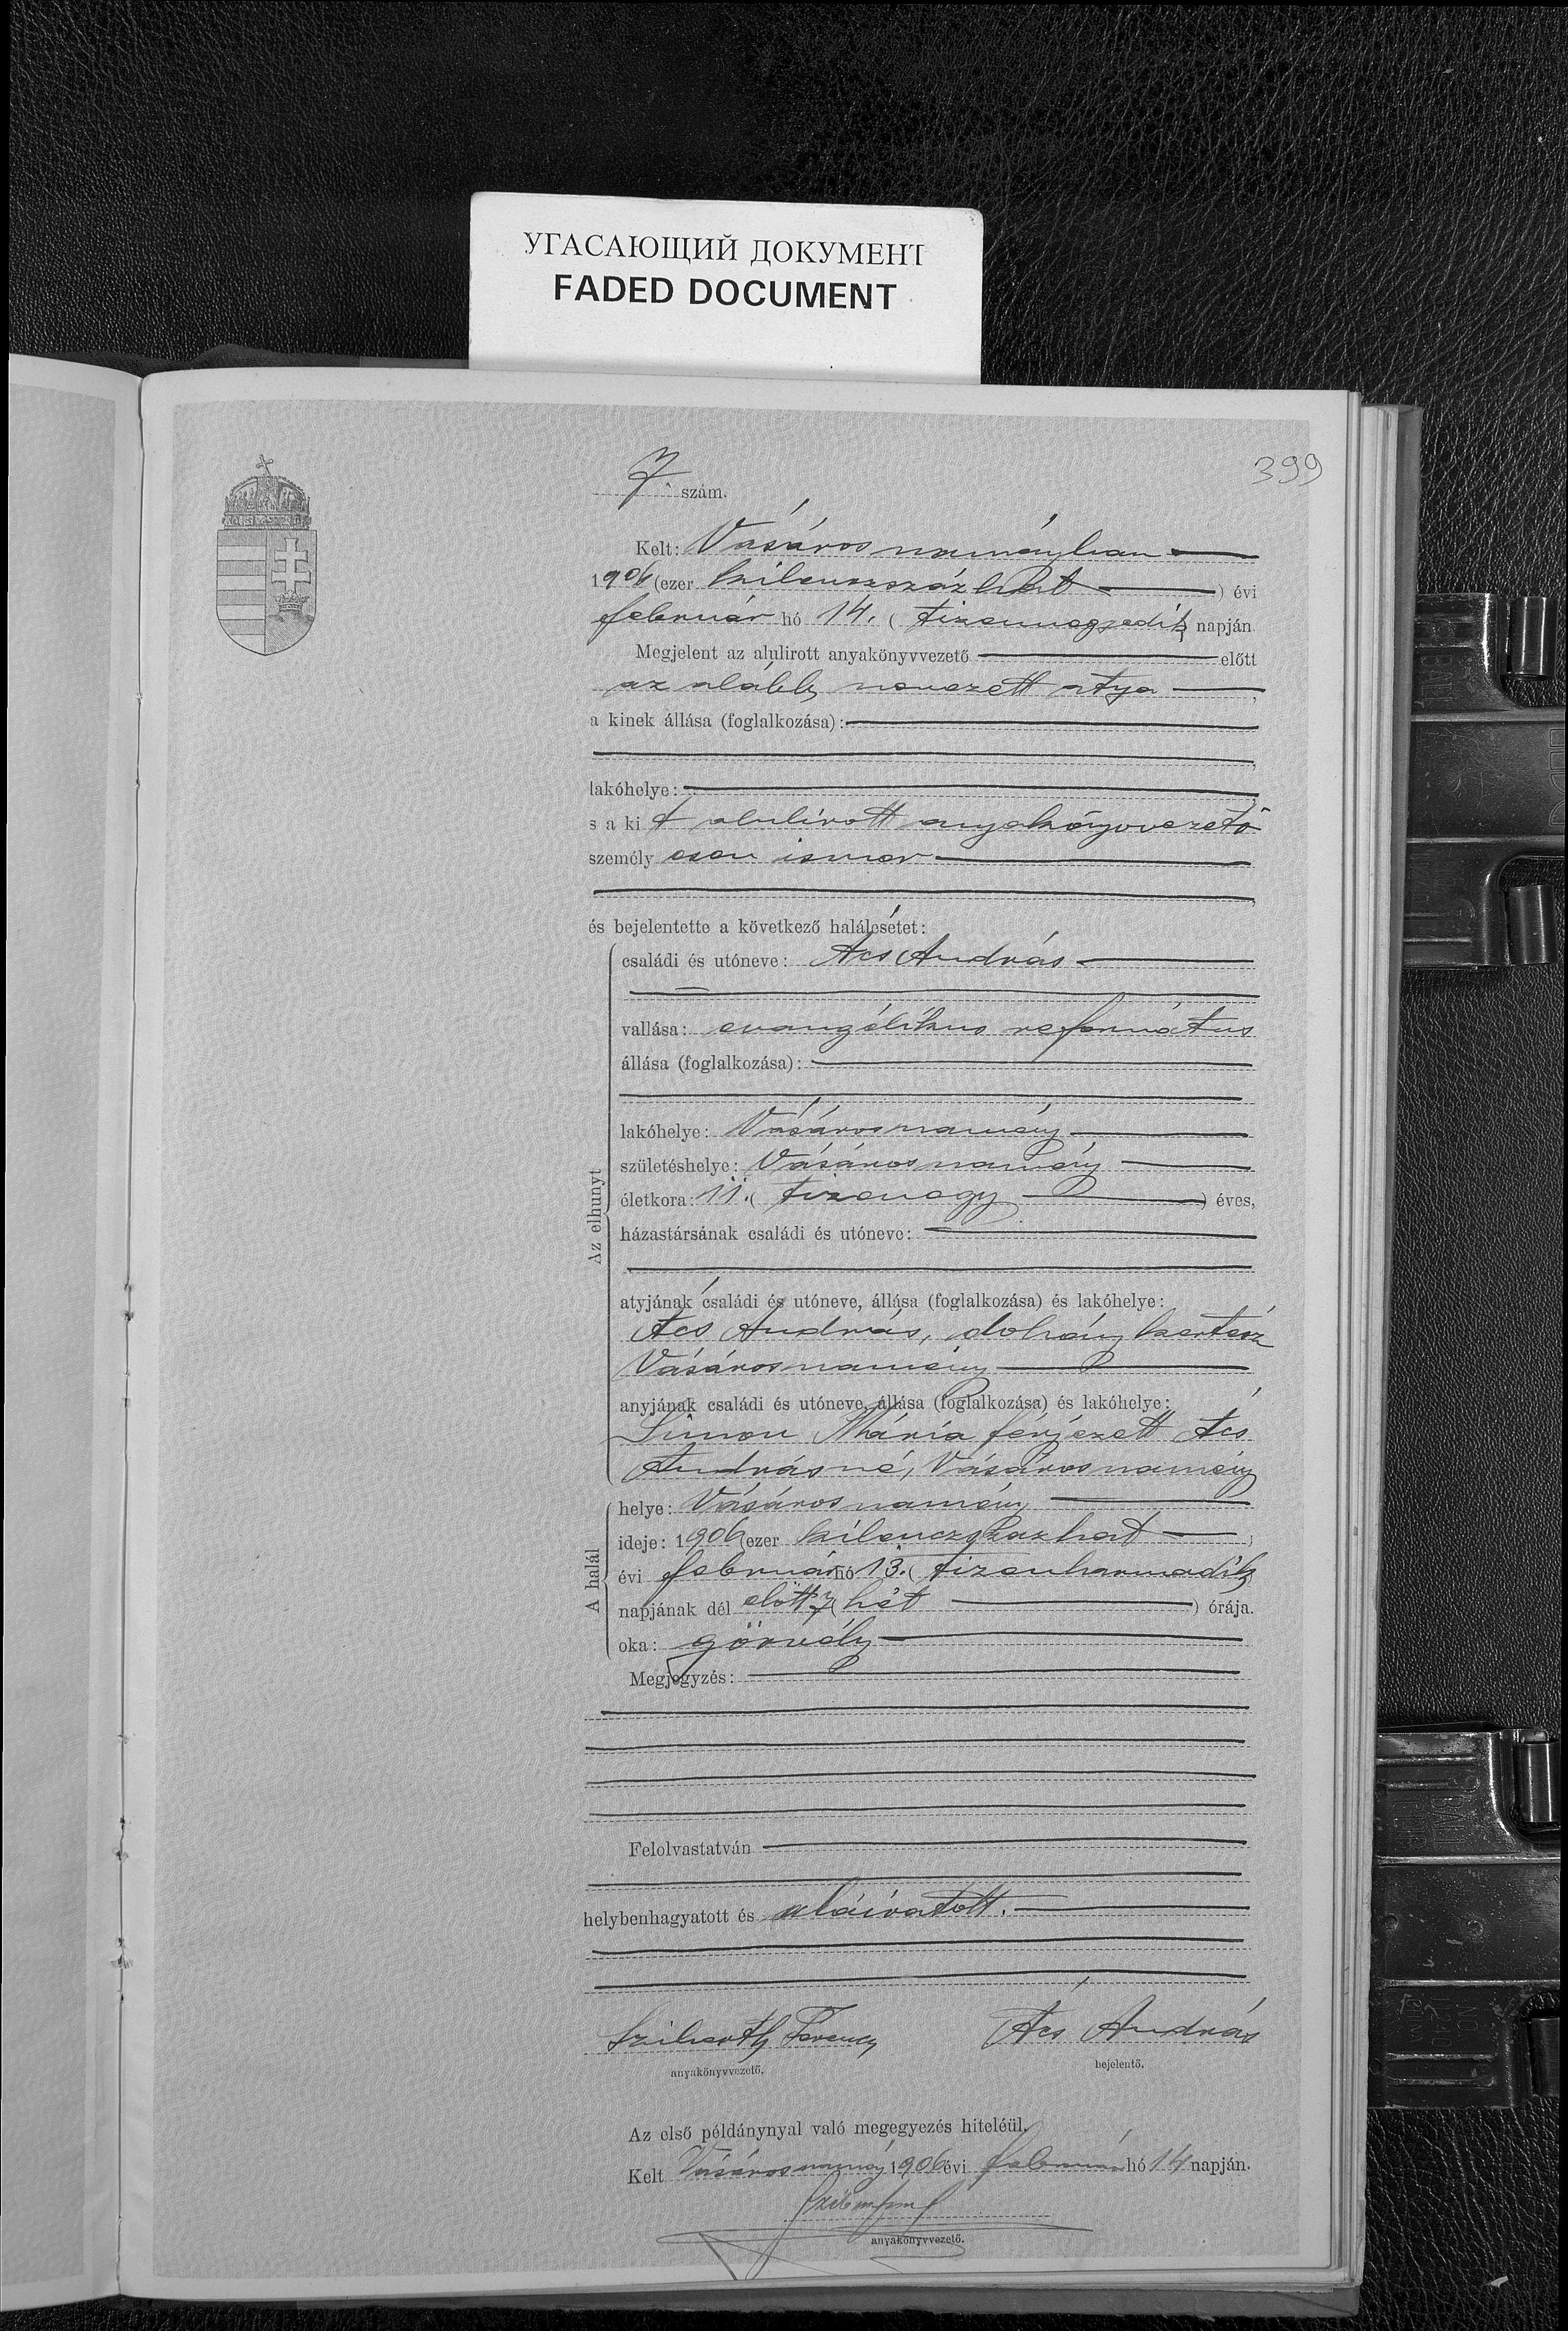 УГАСАЮЩИЙ ДОКУМЕНТ
FADED DOCUMENT
399
7. szám.
Kelt: Vásárosnaményban
1906 (ezer kilenczszázhat ) évi
február hó 14. ( tizennegyedik napján
Megjelent az alulirott anyakönyvvezető előtt
az alább nevezett atya ,
a kinek állása (foglalkozása):
lakóhelye:
s a kit alulírott anyakönyvvezető
személyesen ismer
és bejelentette a következő halálesetet:
Az elhunyt
családi és utóneve: Ács András
vallása: evangélikus református
állása (foglalkozása):
lakóhelye: Vásárosnamény
születéshelye: Vásárosnamény
életkora: 11. ( tizenegy ) éves,
házastársának családi és utóneve:
atyjának családi és utóneve, állása (foglalkozása) és lakóhelye:
Ács András, dohánykertész
Vásárosnamény
anyjának családi és utóneve, állása (foglalkozása) és lakóhelye:
Simon Mária férjezett Ács
Andrásné, Vásárosnamény
A halál
helye: Vásárosnamény
ideje: 1906 (ezer kilenczszázhat )
évi február hó 13. ( tizenharmadik )
napjának dél előtt 7 ( hét ) órája.
oka: görvély
Megjegyzés:
Felolvastatván
helybenhagyatott és aláíratott.
Ferencz Ács András
anyakönyvvezető. bejelentő.
Az első példánynyal való megegyezés hiteléül.
Kelt Vásárosnamény 1906 évi február hó 14 napján.
anyakönyvvezető.